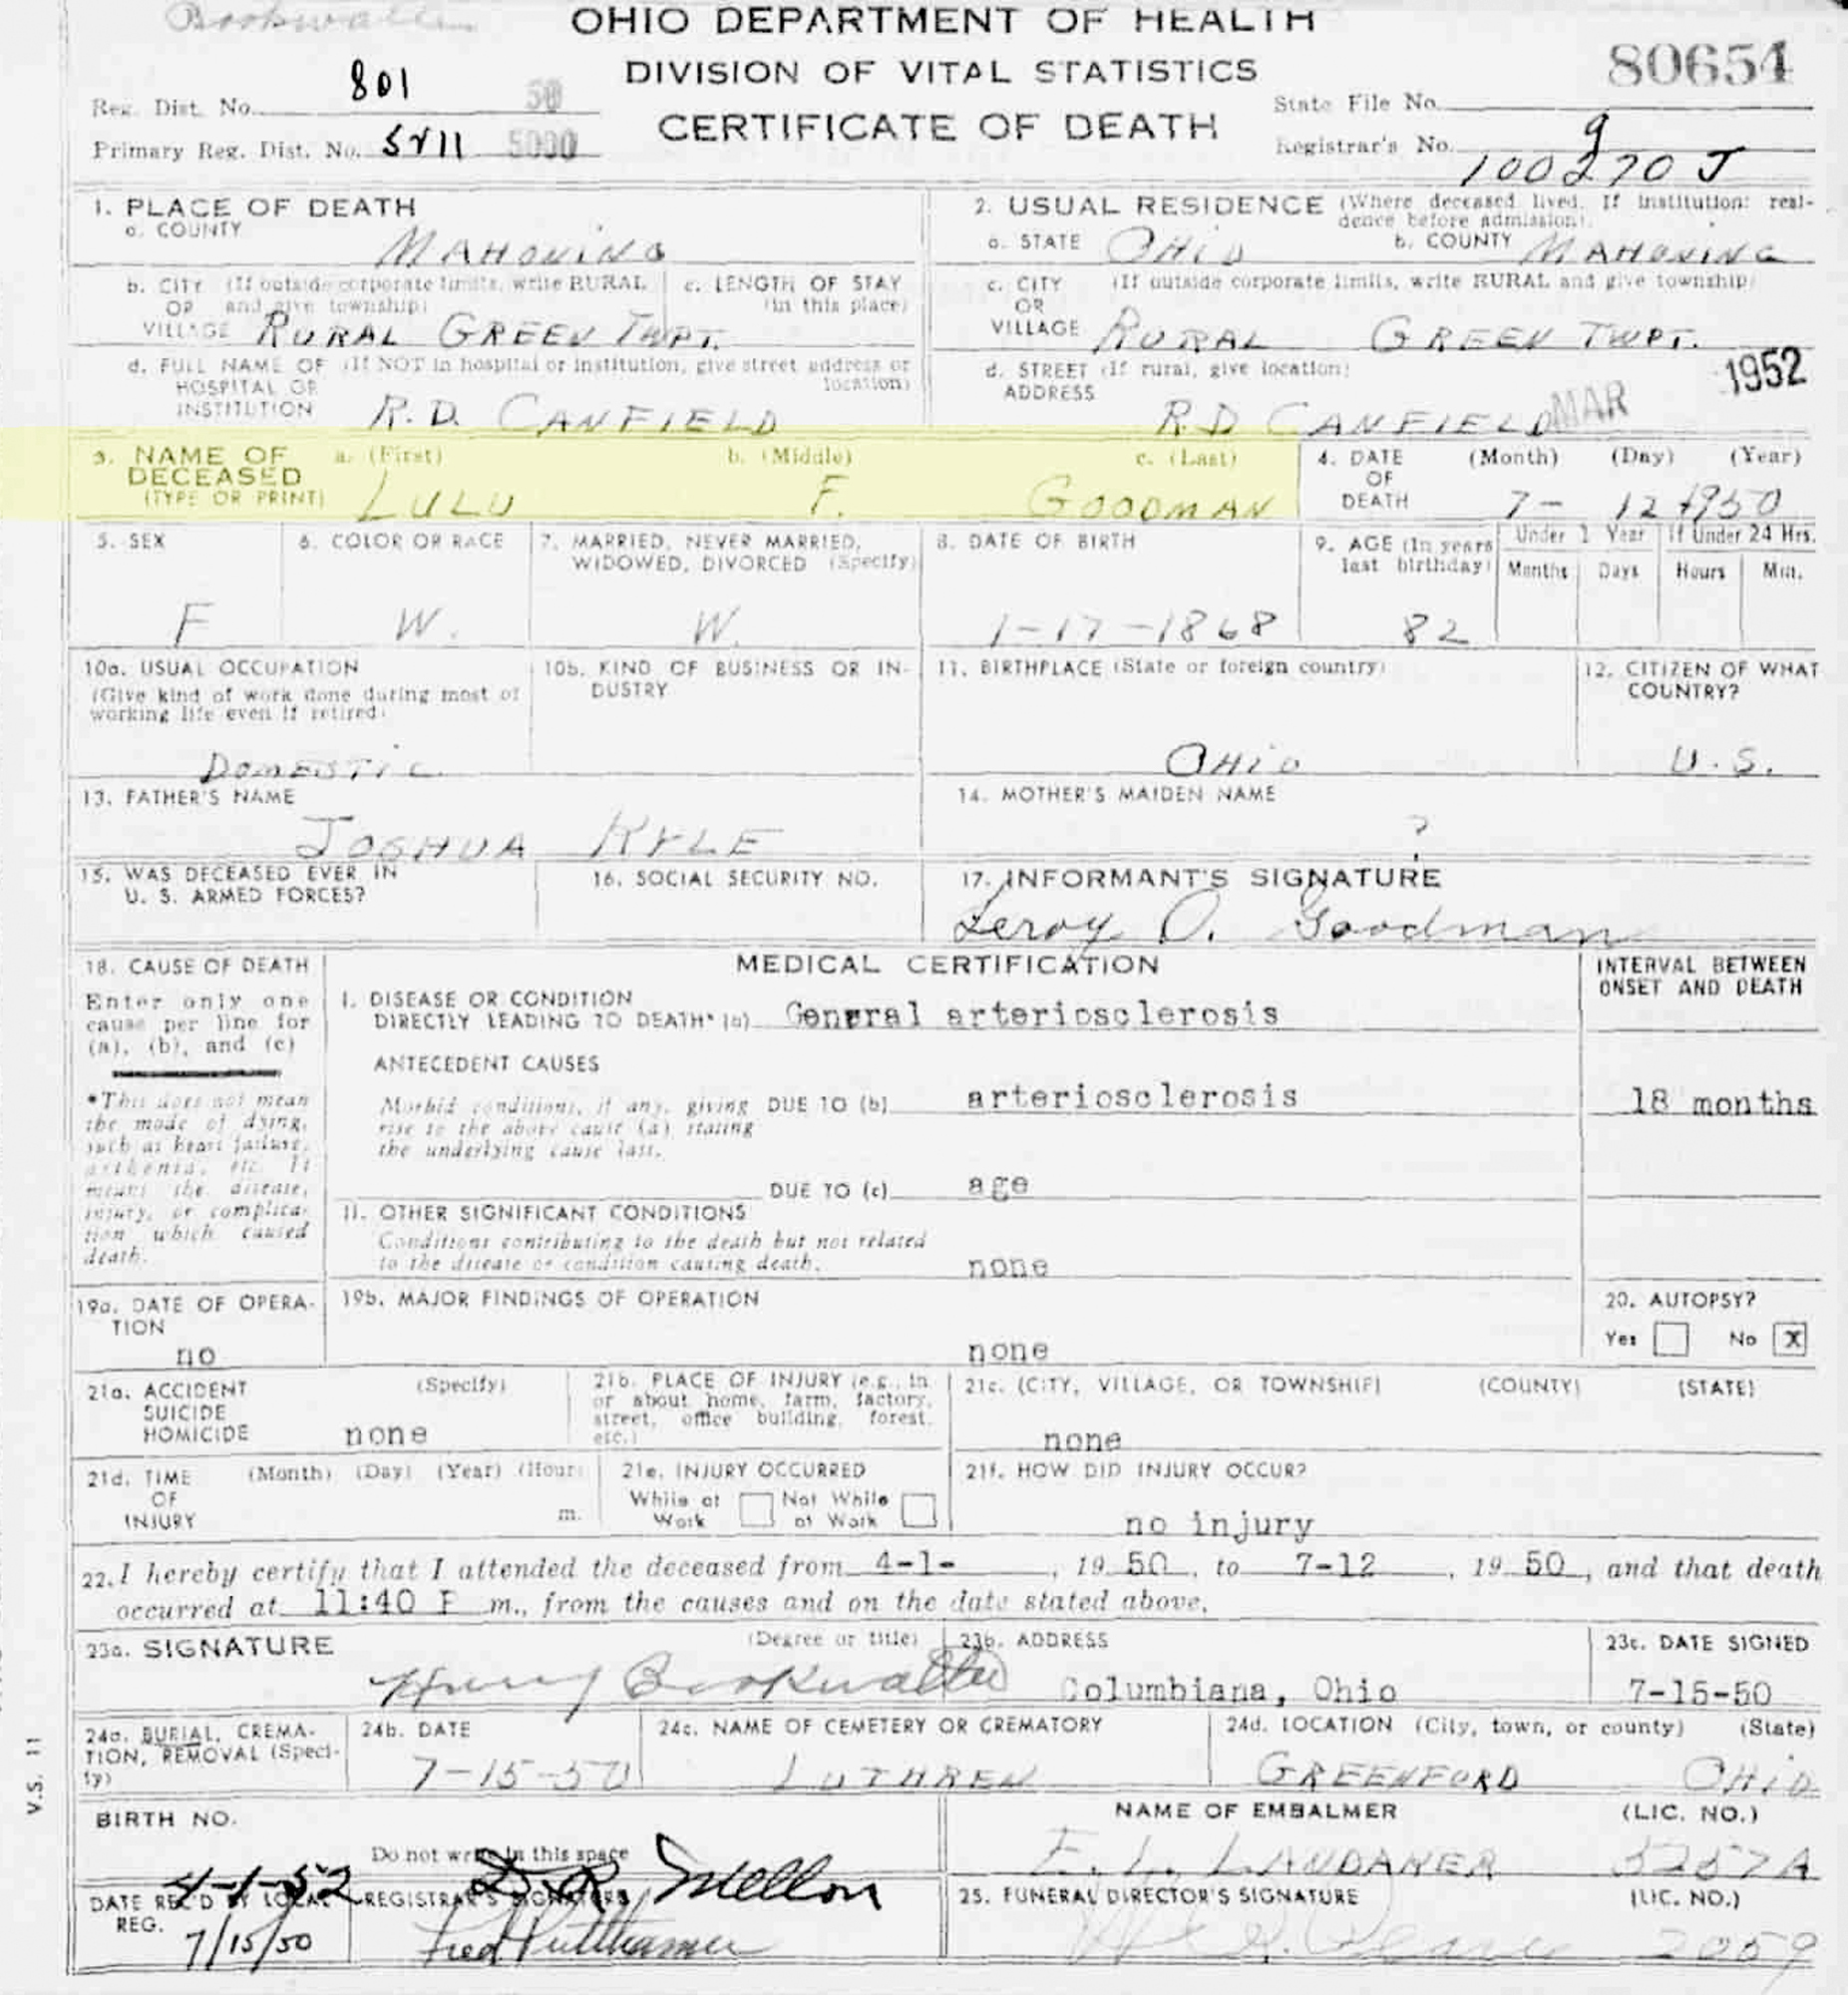 Bookwalter
OHIO DEPARTMENT OF HEALTH
DIVISION OF VITAL STATISTICS
CERTIFICATE OF DEATH
80654
Reg. Dist. No. 801 50
Primary Reg. Dist. No. 5811 5000
State File No.
Registrar's No. 9
100270 J
1. PLACE OF DEATH
a. COUNTY MAHONING
b. CITY (If outside corporate limits, write RURAL
OR and give township)
VILLAGE RURAL GREEN TWPT.
c. LENGTH OF STAY
(in this place)
d. FULL NAME OF (If NOT in hospital or institution, give street address or
HOSPITAL OR location)
INSTITUTION R.D. CANFIELD
2. USUAL RESIDENCE (Where deceased lived. If institution: resi-
dence before admission).
a. STATE OHIO b. COUNTY MAHONING
c. CITY (If outside corporate limits, write RURAL and give township)
OR
VILLAGE RURAL GREEN TWPT.
d. STREET (If rural, give location)
ADDRESS R.D CANFIELD
MAR 1952
3. NAME OF
DECEASED
(TYPE OR PRINT)
a. (First) b. (Middle) c. (Last)
LULU F. GOODMAN
4. DATE (Month) (Day) (Year)
OF
DEATH 7- 12 1950
5. SEX
F
6. COLOR OR RACE
W.
7. MARRIED, NEVER MARRIED,
WIDOWED, DIVORCED (Specify)
W.
8. DATE OF BIRTH
1-17-1868
9. AGE (In years
last birthday)
82
Under 1 Year
Months Days
If Under 24 Hrs.
Hours Min.
10a. USUAL OCCUPATION
(Give kind of work done during most of
working life even if retired)
DOMESTIC
10b. KIND OF BUSINESS OR IN-
DUSTRY
11. BIRTHPLACE (State or foreign country)
OHIO
12. CITIZEN OF WHAT
COUNTRY?
U.S.
13. FATHER'S NAME
JOSHUA KYLE
14. MOTHER'S MAIDEN NAME
?
15. WAS DECEASED EVER IN
U. S. ARMED FORCES?
16. SOCIAL SECURITY NO.
17. INFORMANT'S SIGNATURE
Leroy O. Goodman
18. CAUSE OF DEATH
Enter only one
cause per line for
(a), (b), and (c)
*This does not mean
the mode of dying,
such as heart failure,
asthenia, etc. It
means the disease,
injury, or complica-
tion which caused
death.
MEDICAL CERTIFICATION
INTERVAL BETWEEN
ONSET AND DEATH
I. DISEASE OR CONDITION
DIRECTLY LEADING TO DEATH* (a) General arteriosclerosis
ANTECEDENT CAUSES
Morbid conditions, if any, giving DUE TO (b) arteriosclerosis 18 months
rise to the above cause (a) stating
the underlying cause last.
DUE TO (c) age
II. OTHER SIGNIFICANT CONDITIONS
Conditions contributing to the death but not related
to the disease or condition causing death. none
19a. DATE OF OPERA-
TION
no
19b. MAJOR FINDINGS OF OPERATION
none
20. AUTOPSY?
Yes No X
21a. ACCIDENT (Specify)
SUICIDE
HOMICIDE none
21b. PLACE OF INJURY (e.g., in
or about home, farm, factory,
street, office building, forest,
etc.)
21c. (CITY, VILLAGE, OR TOWNSHIP) (COUNTY) (STATE)
none
21d. TIME (Month) (Day) (Year) (Hour)
OF
INJURY m.
21e. INJURY OCCURRED
While at Not While
Work at Work
21f. HOW DID INJURY OCCUR?
no injury
22. I hereby certify that I attended the deceased from 4-1- , 19 50, to 7-12 , 19 50, and that death
occurred at 11:40 P m., from the causes and on the date stated above.
23a. SIGNATURE (Degree or title)
Henry Bookwalter
23b. ADDRESS
Columbiana, Ohio
23c. DATE SIGNED
7-15-50
24a. BURIAL, CREMA-
TION, REMOVAL (Speci-
fy)
24b. DATE
7-15-50
24c. NAME OF CEMETERY OR CREMATORY
LUTHREN
24d. LOCATION (City, town, or county) (State)
GREENFORD OHIO
V.S. 11
BIRTH NO.
Do not write in this space
4-1-52 D. R. Mellon
NAME OF EMBALMER (LIC. NO.)
E. L. LANDAKER 5257A
DATE REC'D BY LOCAL
REG.
7/15/50
REGISTRAR'S SIGNATURE
Fred Putthamer
25. FUNERAL DIRECTOR'S SIGNATURE (LIC. NO.)
2059